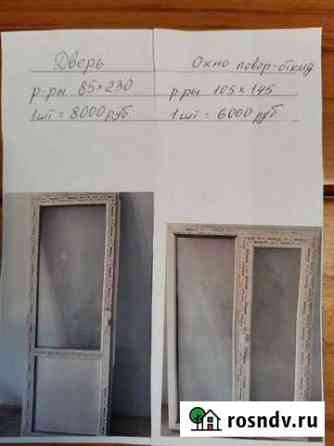 Дверь
р-ры 85×230
1шт = 8000 руб.
Окно повор-откид
р-ры 105×145
1шт = 6000 руб.
rosndv.ru